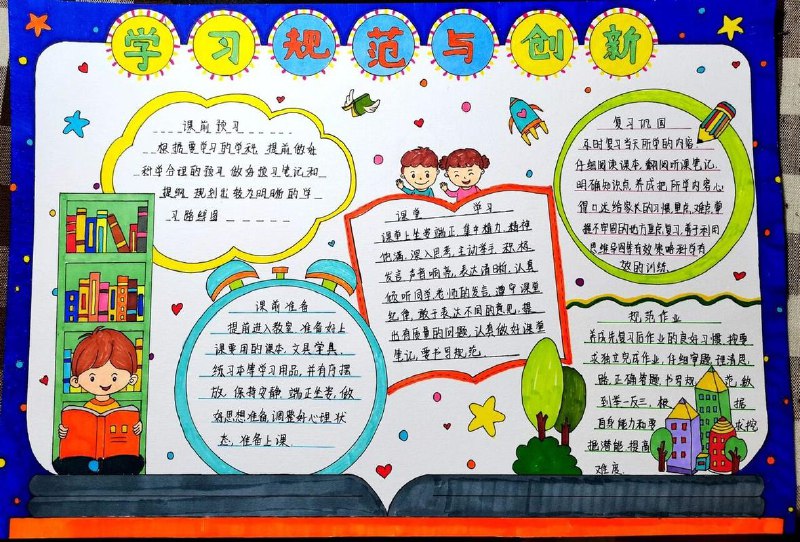 学习规范与创新
课前预习
根据要学习的学科,提前做好
科学合理的预习,做好预习笔记和
提纲,规划出较为明晰的学
习路线道
课前准备
提前进入教室,准备好上
课要用的课本,文具学具,
练习本等学习用品,并有序摆
放,保持安静,端正坐姿,做
好思想准备,调整好心理状
态,准备上课.
课堂 学习
课堂上坐姿端正,集中精力,精神
饱满,深入思考,主动举手,积极
发言,声音响亮,表达清晰,认真
倾听同学老师的发言,遵守课堂
纪律,敢于表达不同的意见,提
出有质量的问题,认真做好课堂
笔记,要书写规范
复习巩固
及时复习当天所学的内容
仔细阅读课本,翻阅听课笔记,
明确知识点,养成把所学内容心
得口述给家长的习惯,重点,难点,掌
握不牢固的地方重点复习,善于利用
思维导图等有效策略科学有
效的训练.
规范作业
养成先复习后作业的良好习惯,按要
求独立完成作业,仔细审题,理清思
路,正确答题,书写规范,做
到举一反三,根据
自身能力和需求挖
掘潜能,提高
难度.